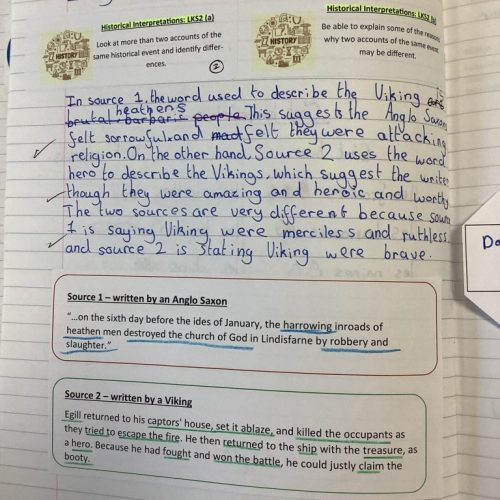 Historical Interpretations: LKS2 (a)
Look at more than two accounts of the
same historical event and identify differ-
ences.
HISTORY
2
Historical Interpretations: LKS2 (b)
Be able to explain some of the reasons
why two accounts of the same event
may be different.
HISTORY
In source 1, the word used to describe the Viking is
heathens
brutal barbaric people. This suggests the Anglo Saxons
felt sorrowful and mad felt they were attacking
religion. On the other hand Source 2 uses the word
hero to describe the Vikings, which suggest the writer
though they were amazing and heroic and worthy
The two sources are very different because source
1 is saying Viking were merciless and ruthless
and source 2 is stating Viking were brave.
Source 1 – written by an Anglo Saxon
"...on the sixth day before the ides of January, the harrowing inroads of
heathen men destroyed the church of God in Lindisfarne by robbery and
slaughter."
Source 2 – written by a Viking
Egill returned to his captors' house, set it ablaze, and killed the occupants as
they tried to escape the fire. He then returned to the ship with the treasure, as
a hero. Because he had fought and won the battle, he could justly claim the
booty.